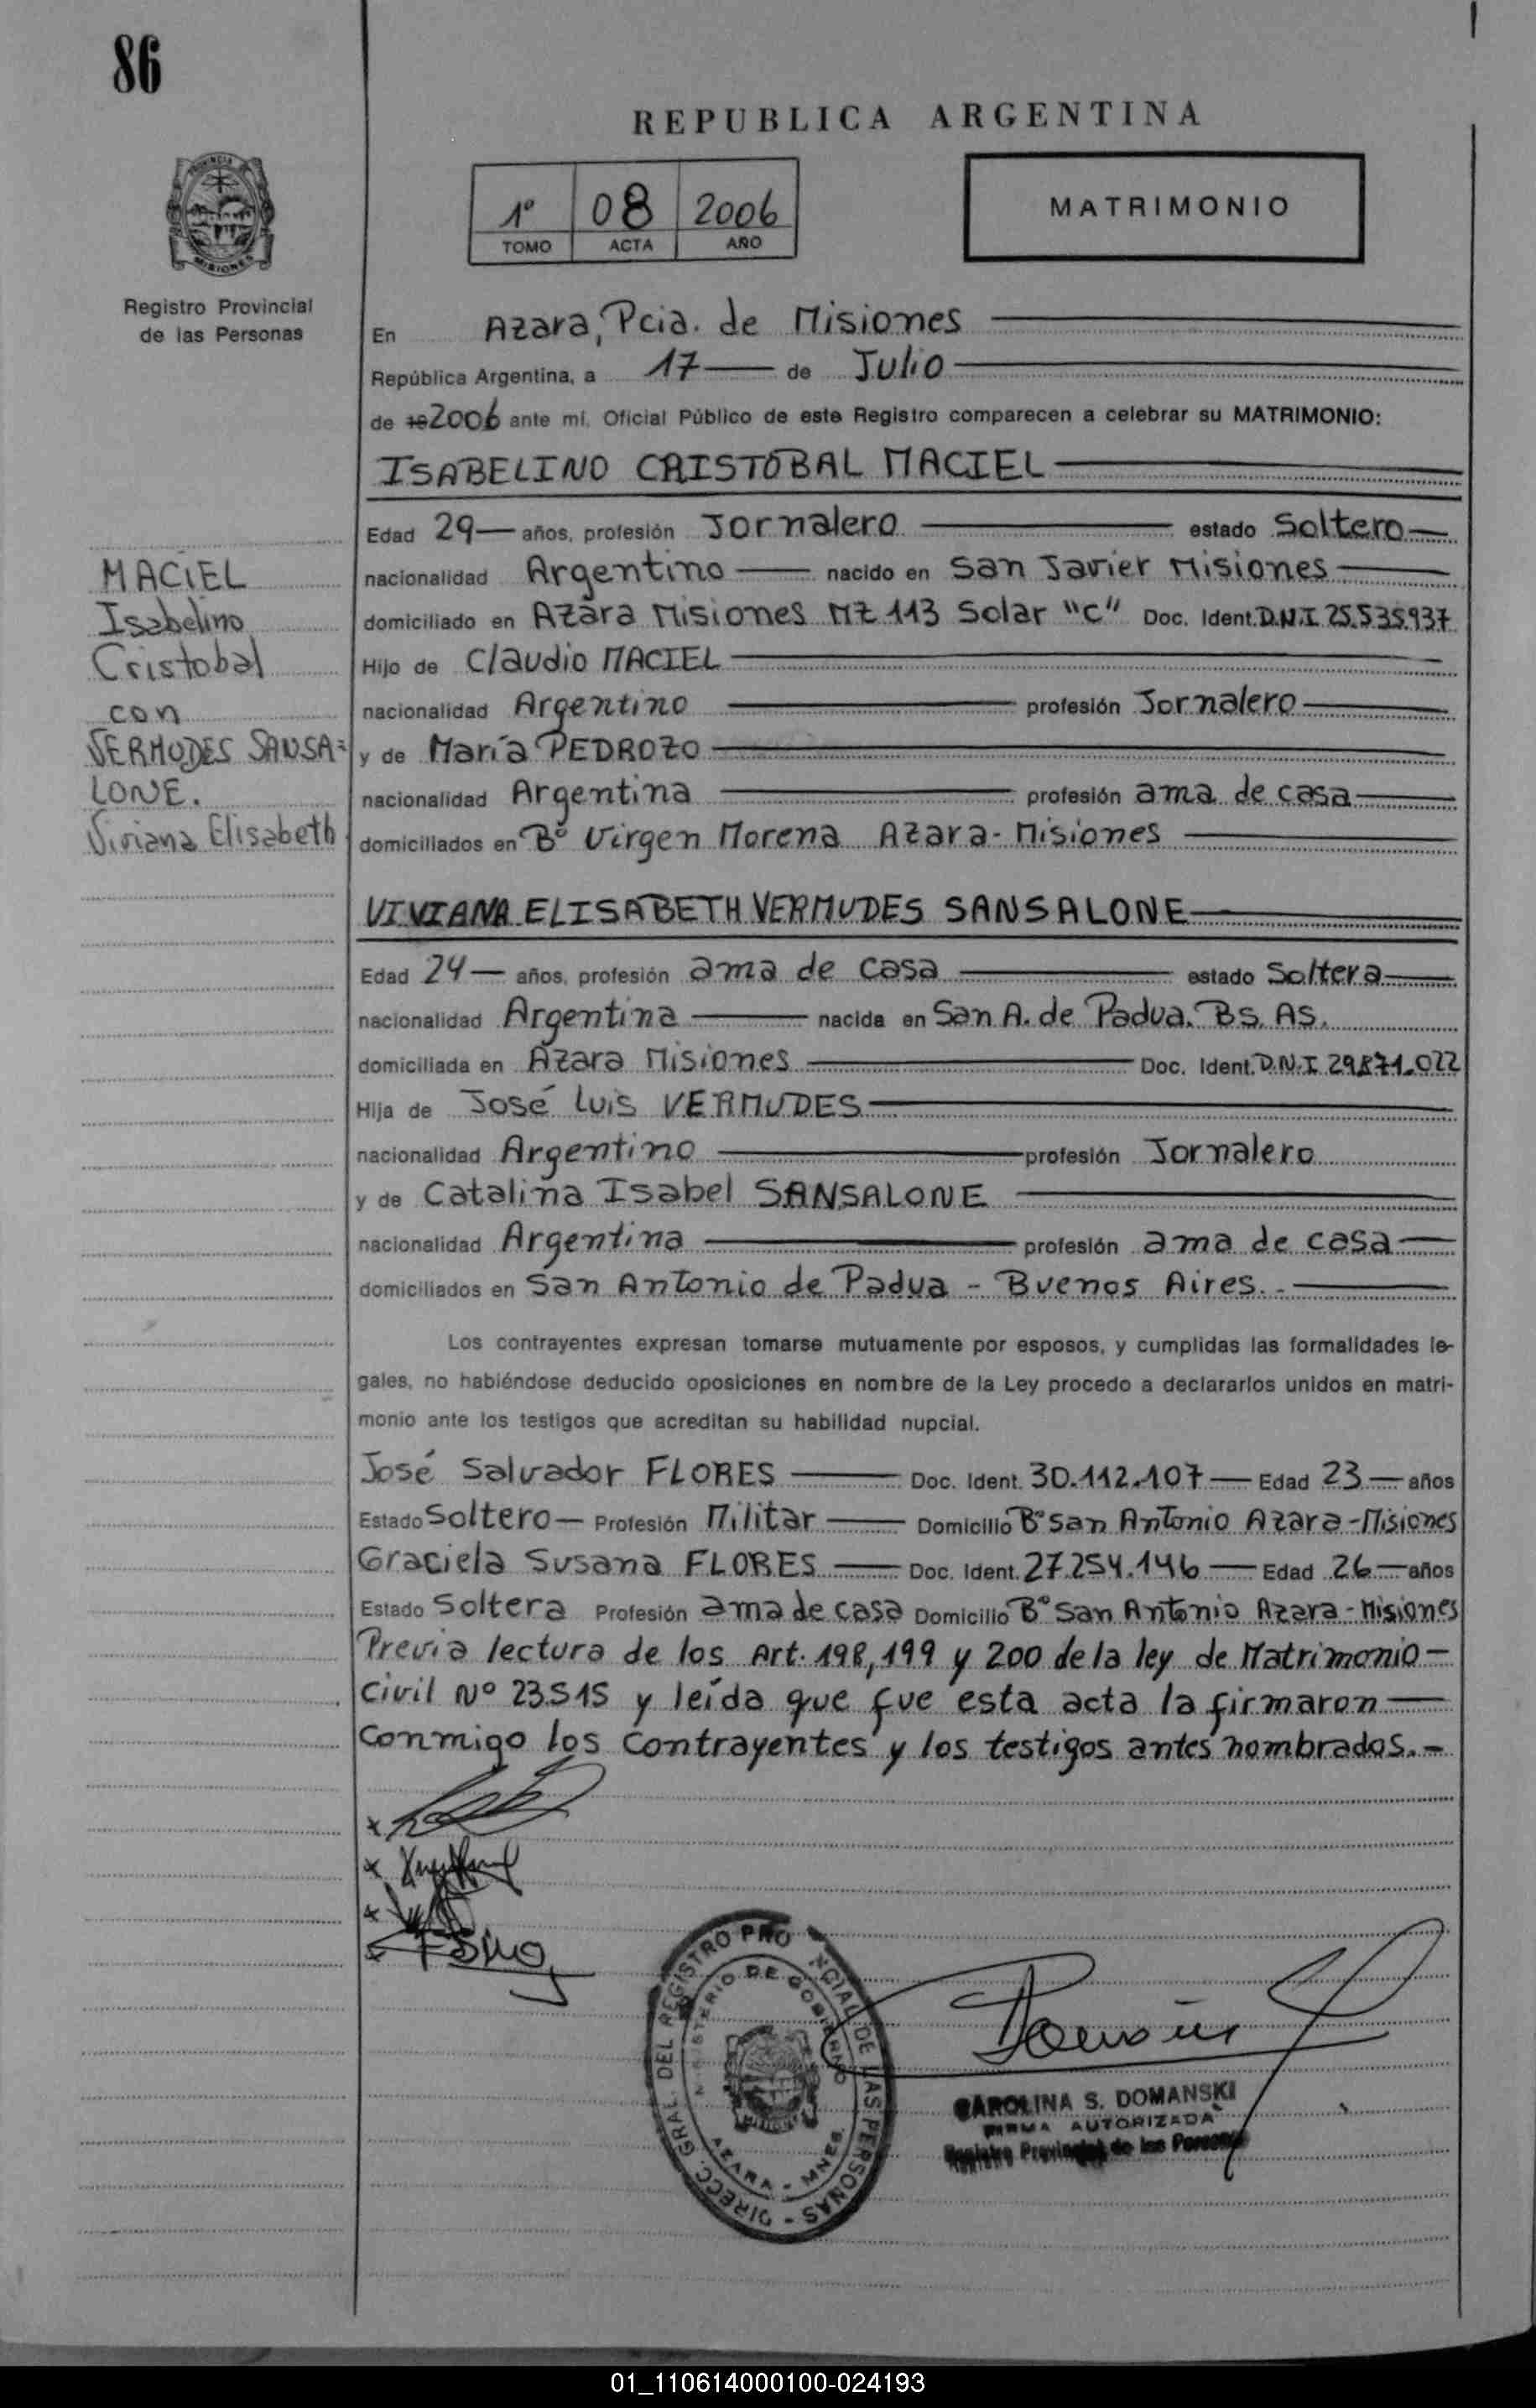 86
REPUBLICA ARGENTINA
1º 08 2006
TOMO ACTA AÑO
MATRIMONIO
PROVINCIA
MISIONES
Registro Provincial
de las Personas
En Azara, Pcia. de Misiones
República Argentina, a 17 de Julio
de 19 2006 ante mí, Oficial Público de este Registro comparecen a celebrar su MATRIMONIO:
ISABELINO CRISTOBAL MACIEL
Edad 29 años, profesión Jornalero estado Soltero
nacionalidad Argentino nacido en San Javier Misiones
domiciliado en Azara Misiones MZ 113 Solar "C" Doc. Ident. D.N.I 25.535.937
Hijo de Claudio MACIEL
nacionalidad Argentino profesión Jornalero
y de María PEDROZO
nacionalidad Argentina profesión ama de casa
domiciliados en Bº Virgen Morena Azara - Misiones
MACIEL
Isabelino
Cristobal
con
VERMUDES SANSA=
LONE.
Viviana Elisabeth
VIVIANA ELISABETH VERMUDES SANSALONE
Edad 24 años, profesión ama de casa estado Soltera
nacionalidad Argentina nacida en San A. de Padua. Bs. As.
domiciliada en Azara Misiones Doc. Ident. D.N.I 29.871.022
Hija de José Luis VERMUDES
nacionalidad Argentino profesión Jornalero
y de Catalina Isabel SANSALONE
nacionalidad Argentina profesión ama de casa
domiciliados en San Antonio de Padua - Buenos Aires. -
Los contrayentes expresan tomarse mutuamente por esposos, y cumplidas las formalidades le-
gales, no habiéndose deducido oposiciones en nombre de la Ley procedo a declararlos unidos en matri-
monio ante los testigos que acreditan su habilidad nupcial.
José Salvador FLORES Doc. Ident. 30.112.107 Edad 23 años
Estado Soltero Profesión Militar Domicilio Bº San Antonio Azara - Misiones
Graciela Susana FLORES Doc. Ident. 27.254.146 Edad 26 años
Estado Soltera Profesión ama de casa Domicilio Bº San Antonio Azara - Misiones
Previa lectura de los Art. 198, 199 y 200 de la ley de Matrimonio
Civil Nº 23.515 y leída que fue esta acta la firmaron
conmigo los contrayentes y los testigos antes nombrados. -
DIRECC. GRAL. DEL REGISTRO PRO NCIAL DE LAS PERSONAS -
MINISTERIO DE GOBIERNO
AZARA - MNES.
CAROLINA S. DOMANSKI
FIRMA AUTORIZADA
Registro Provincial de las Personas
01_110614000100-024193